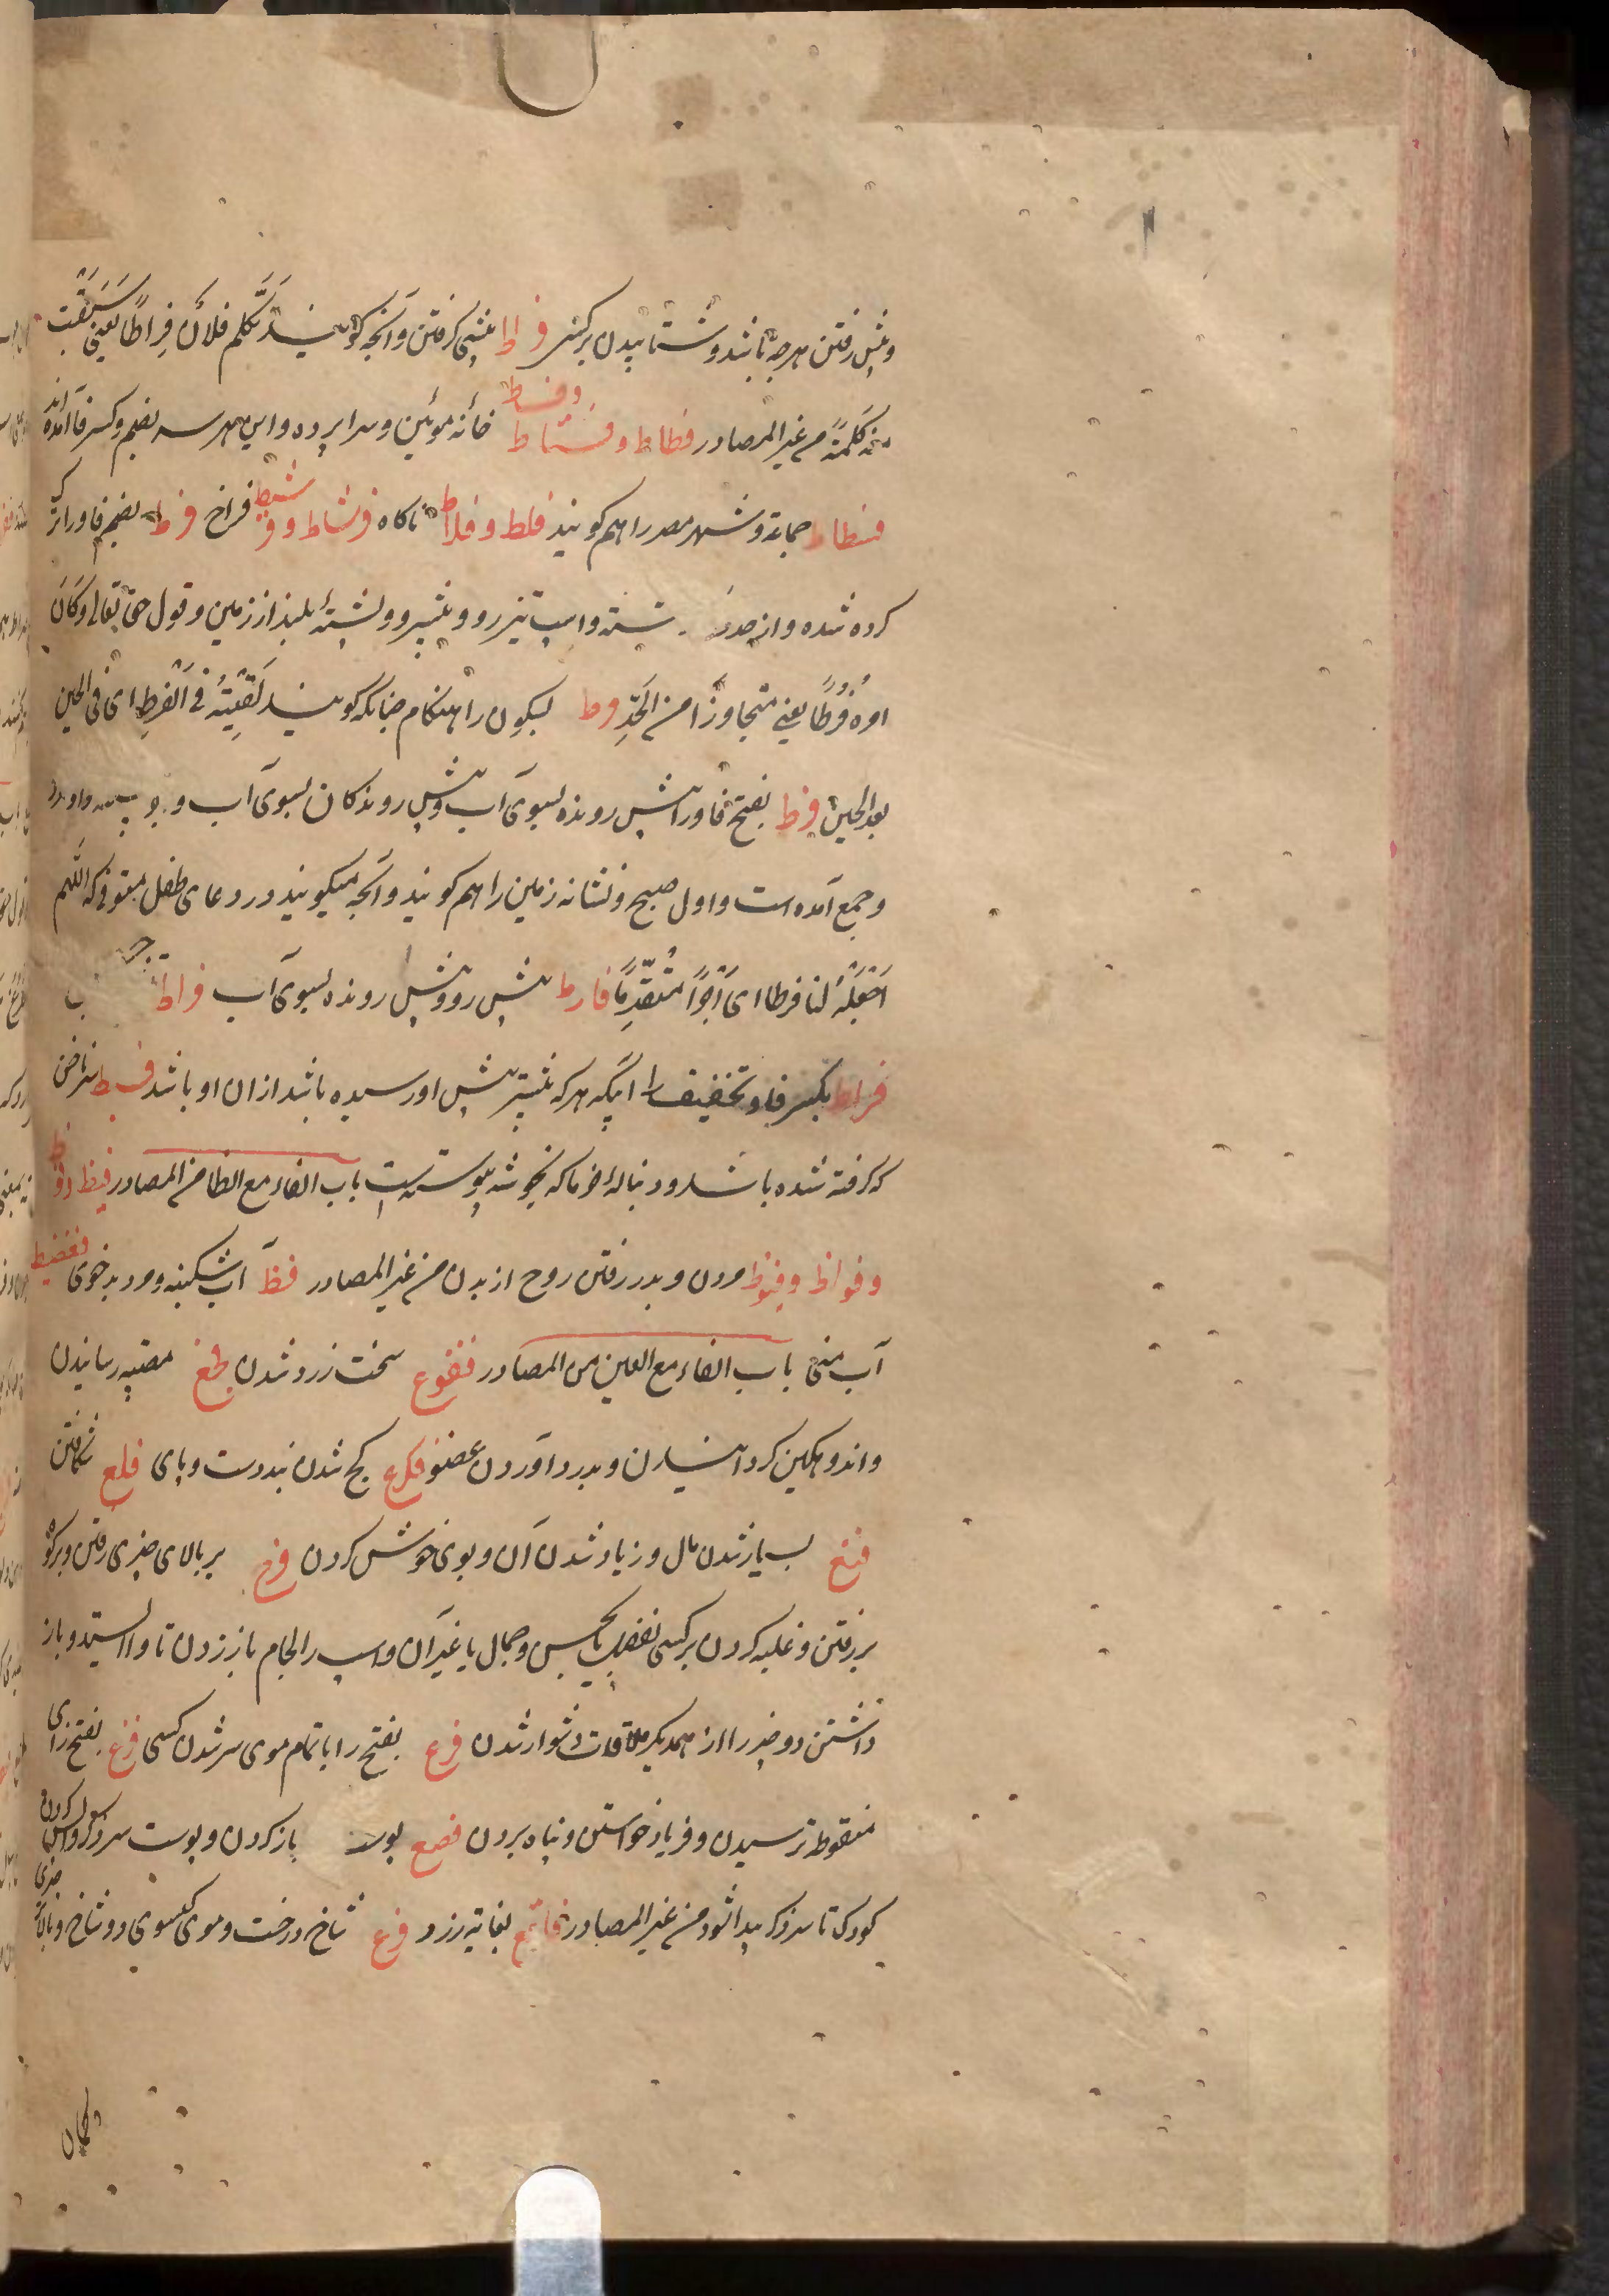 و پیش رفتن هرچه باشد و شتابیدن بر کسی فراط پیشی گرفتن و آنچه گویند تَکَلَّمَ فلانٌ فِراطًا یعنی سَبَقَت
منه کَلِمَةً من غیر المصادر فسطاط و فستاط و فساط خانه موئین و سراپرده و این هر سه بضم و کسر فا آمده اند
فسطاط جماعة و شهر مصر را هم گویند فلط و فلاط ناکاه فرشاط و فرشیط فراخ فرط بضم فا و را ترک
کرده شده و از حد گذشته و اسپ تیزرو و پیشرو و پشتهٔ بلند از زمین و قول حق تعالی وَکَانَ
امره فُرُطًا یعنی متجاوزًا من الحَدِّ فرط بسکون را هنکام چنانکه گویند لَقِیتُهُ فی الفَرطِ ای فی الحین
بعد الحین فرط بفتح فا و را پیش رونده بسوی آب و پیش روندکان بسوی آب و واحد
و جمع آمده است و اول صبح و نشانه زمین را هم گویند و آنچه میگویند در دعای طفل متوفی که اللّهم
اجْعَلْهُ لنا فرطا ای أَجْرًا مُتَقَدِّمًا فارط پیش رو و پیش رونده بسوی آب فراط
فراط بکسر فا و تخفیف را آبکه هر که پیشتر پیش او رسیده باشد از ان او باشد فسیط سر ناخن
که گرفته شده باشد و دنباله خرما که بخوشه پیوسته است باب الفاء مع الظا من المصادر فیظ و فوظ
و فواظ و فیوظ مردن و بدر رفتن روح از بدن من غیر المصادر فظ آب شکنبه و مرد بدخوی فظیظ
آب منی باب الفاء مع العین من المصادر فقوع سخت زرد شدن فجع مصیبت رسانیدن
و اندوهکین کردانیدن و بدرد آوردن عضو فدع کج شدن بند دست و پای فلع شکافتن
فنع بسیار شدن مال و زیاد شدن آن و بوی خوش کردن فرع بر بالای چیزی رفتن و بر کوه
بر رفتن و غلبه کردن بر کسی بفضل یا بحسن و جمال یا غیر آن و اسپ را لجام باز زدن تا وا ایستد و باز
داشتن دو چیز را از همدیکر ملاقات دشوار شدن فرع بفتح را با تمام موی سر شدن کسی فزع بفتح زای
منقوط ترسیدن و فریاد خواستن و پناه بردن فصع پوست باز کردن و پوست سر ذکر واپس کردن
کودک تا سر ذکر پیدا شود من غیر المصادر فاقع بغایة زرد فرع شاخ درخت و موی کیسوی و شاخ و بالای چیزی